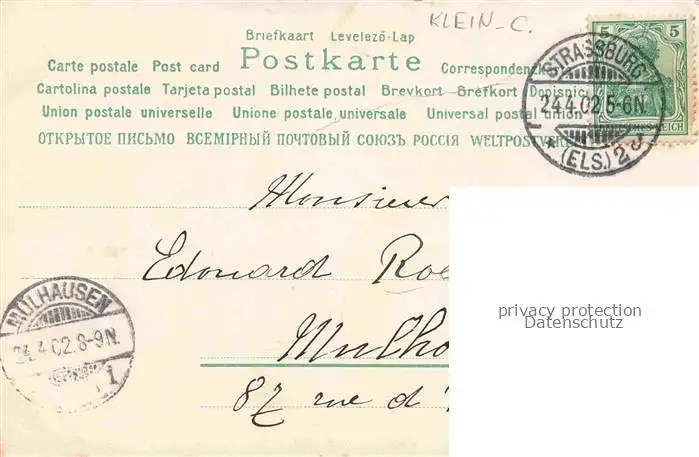 KLEIN-C.
Briefkaart Levelező-Lap
Postkarte
Carte postale Post card Correspondenzk
Cartolina postale Tarjeta postal Bilhete postal Brevkort Brefkort Dopisnice
Union postale universelle Unione postale universale Universal postal union
ОТКРЫТОЕ ПИСЬМО ВСЕМІРНЫЙ ПОЧТОВЫЙ СОЮЗЪ РОССІЯ WELTPOSTVER
5 5
STRASSBURG
24.4.02.5-6N
* (ELS.) 2 J
Monsieur
Edouard Roe
Mulho
87 rue d'
MÜLHAUSEN
24.4.02.8-9N.
1
privacy protection
Datenschutz